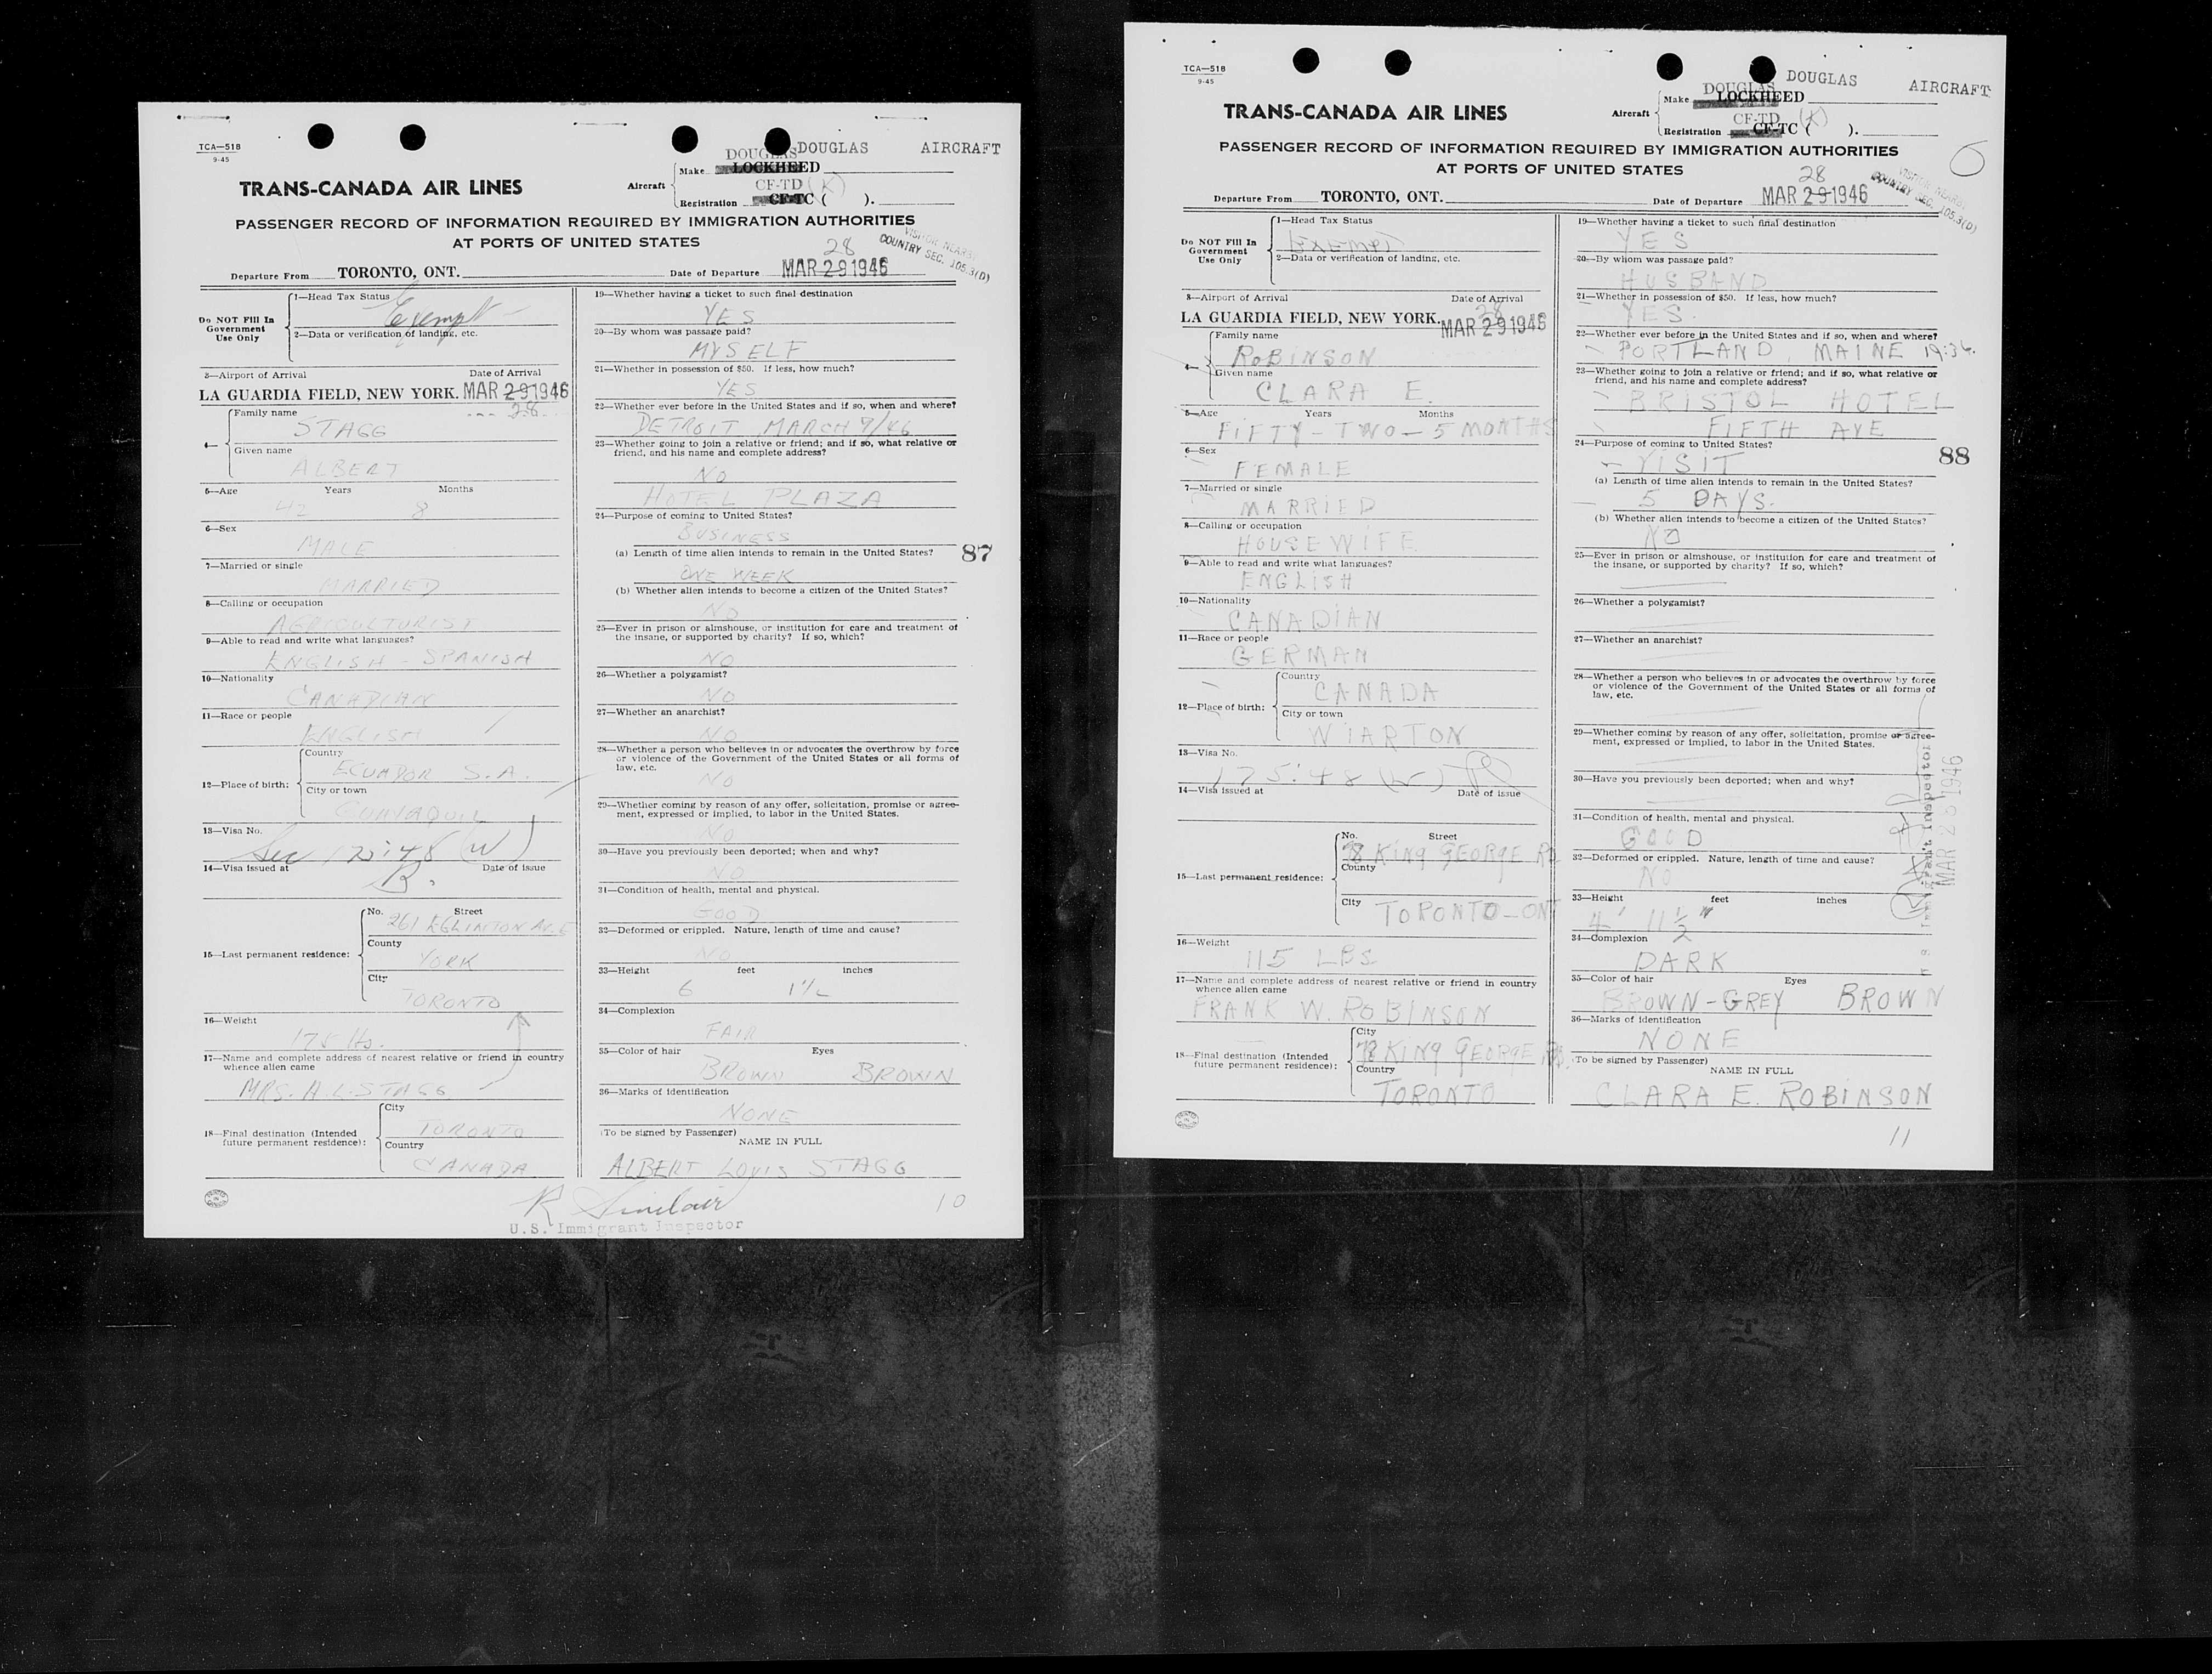 TCA—518
9-45
DOUGLAS DOUGLAS AIRCRAFT
Make LOCKHEED
TRANS-CANADA AIR LINES
Aircraft
CF-TD (K)
Registration CF-TC ( ).
PASSENGER RECORD OF INFORMATION REQUIRED BY IMMIGRATION AUTHORITIES
AT PORTS OF UNITED STATES
VISITOR NEARBY
COUNTRY SEC. 105.3(D)
28
Departure From TORONTO, ONT. Date of Departure MAR 29 1946
Do NOT Fill In
Government
Use Only
1—Head Tax Status
Exempt
2—Data or verification of landing, etc.
3—Airport of Arrival Date of Arrival
LA GUARDIA FIELD, NEW YORK. MAR 29 1946
28
4—
Family name
STAGG
Given name
ALBERT
5—Age Years Months
42 8
6—Sex
MALE
7—Married or single
MARRIED
8—Calling or occupation
AGRICULTURIST
9—Able to read and write what languages?
ENGLISH - SPANISH
10—Nationality
CANADIAN
11—Race or people
ENGLISH
12—Place of birth:
Country
ECUADOR S.A.
City or town
GUAYAQUIL
13—Visa No.
Sec 175.48 (W)
14—Visa issued at Date of issue
15—Last permanent residence:
No. Street
261 EGLINTON AV. E
County
YORK
City
TORONTO
16—Weight
175 lbs.
17—Name and complete address of nearest relative or friend in country
whence alien came
MRS. A.L. STAGG
18—Final destination (Intended
future permanent residence):
City
TORONTO
Country
CANADA
19—Whether having a ticket to such final destination
YES
20—By whom was passage paid?
MYSELF
21—Whether in possession of $50. If less, how much?
YES
22—Whether ever before in the United States and if so, when and where?
DETROIT MARCH 9/46
23—Whether going to join a relative or friend; and if so, what relative or
friend, and his name and complete address?
NO
HOTEL PLAZA
24—Purpose of coming to United States?
BUSINESS
(a) Length of time alien intends to remain in the United States?
87
ONE WEEK
(b) Whether alien intends to become a citizen of the United States?
NO
25—Ever in prison or almshouse, or institution for care and treatment of
the insane, or supported by charity? If so, which?
NO
26—Whether a polygamist?
NO
27—Whether an anarchist?
NO
28—Whether a person who believes in or advocates the overthrow by force
or violence of the Government of the United States or all forms of
law, etc.
NO
29—Whether coming by reason of any offer, solicitation, promise or agree-
ment, expressed or implied, to labor in the United States.
NO
30—Have you previously been deported; when and why?
NO
31—Condition of health, mental and physical.
GOOD
32—Deformed or crippled. Nature, length of time and cause?
NO
33—Height feet inches
6 1½
34—Complexion
FAIR
35—Color of hair Eyes
BROWN BROWN
36—Marks of identification
NONE
(To be signed by Passenger)
NAME IN FULL
ALBERT LOUIS STAGG
R Sinclair
U.S. Immigrant Inspector
10
TCA—518
9-45
DOUGLAS DOUGLAS AIRCRAFT
Make LOCKHEED
TRANS-CANADA AIR LINES
Aircraft
CF-TD (K)
Registration CF-TC ( ).
PASSENGER RECORD OF INFORMATION REQUIRED BY IMMIGRATION AUTHORITIES
AT PORTS OF UNITED STATES
VISITOR NEARBY
COUNTRY SEC. 105.3(D)
28
Departure From TORONTO, ONT. Date of Departure MAR 29 1946
Do NOT Fill In
Government
Use Only
1—Head Tax Status
EXEMPT
2—Data or verification of landing, etc.
3—Airport of Arrival Date of Arrival
28
LA GUARDIA FIELD, NEW YORK. MAR 29 1946
4—
Family name
ROBINSON
Given name
CLARA E.
5—Age Years Months
FIFTY-TWO - 5 MONTHS
6—Sex
FEMALE
7—Married or single
MARRIED
8—Calling or occupation
HOUSEWIFE
9—Able to read and write what languages?
ENGLISH
10—Nationality
CANADIAN
11—Race or people
GERMAN
12—Place of birth:
Country
CANADA
City or town
WIARTON
13—Visa No.
175.48 (W)
14—Visa issued at Date of issue
15—Last permanent residence:
No. Street
78 KING GEORGE RD
County
City
TORONTO - ONT
16—Weight
115 LBS
17—Name and complete address of nearest relative or friend in country
whence alien came
FRANK W. ROBINSON
18—Final destination (Intended
future permanent residence):
City
78 KING GEORGE RD.
Country
TORONTO
19—Whether having a ticket to such final destination
YES
20—By whom was passage paid?
HUSBAND
21—Whether in possession of $50. If less, how much?
YES.
22—Whether ever before in the United States and if so, when and where?
PORTLAND, MAINE 19:36.
23—Whether going to join a relative or friend; and if so, what relative or
friend, and his name and complete address?
BRISTOL HOTEL
FIFTH AVE
24—Purpose of coming to United States?
88
VISIT
(a) Length of time alien intends to remain in the United States?
5 DAYS.
(b) Whether alien intends to become a citizen of the United States?
NO
25—Ever in prison or almshouse, or institution for care and treatment of
the insane, or supported by charity? If so, which?
26—Whether a polygamist?
27—Whether an anarchist?
28—Whether a person who believes in or advocates the overthrow by force
or violence of the Government of the United States or all forms of
law, etc.
29—Whether coming by reason of any offer, solicitation, promise or agree-
ment, expressed or implied, to labor in the United States.
30—Have you previously been deported; when and why?
31—Condition of health, mental and physical.
GOOD
32—Deformed or crippled. Nature, length of time and cause?
NO
33—Height feet inches
4' 11½"
34—Complexion
DARK
35—Color of hair Eyes
BROWN-GREY BROWN
36—Marks of identification
NONE
(To be signed by Passenger)
NAME IN FULL
CLARA E. ROBINSON
Immigrant Inspector
MAR 28 1946
11